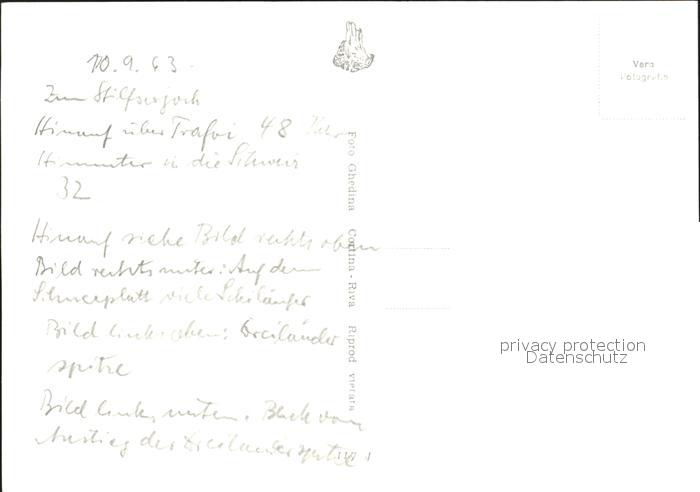 10.9.63.
Zum Stilfserjoch
Hinauf über Trafoi 48
Hinunter in die Schweiz
32
Hinauf siehe Bild rechts oben
Bild rechts unten: Auf dem
viele Schiläufer
Bild links oben: Dreiländer
spitze
Bild links unten. Blick vom
Anstieg der Dreiländerspitze
Foto Ghedina Cortina - Riva Riprod vietata
Vera
Fotografia
privacy protection
Datenschutz